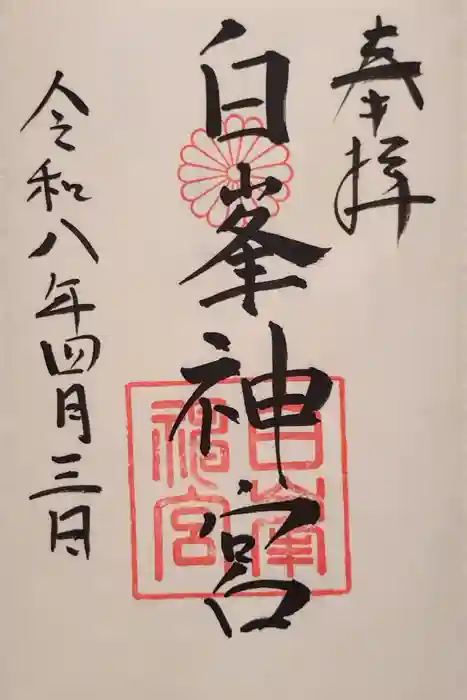 奉拝
白峯神宮
令和八年四月三日
白峯
神宮